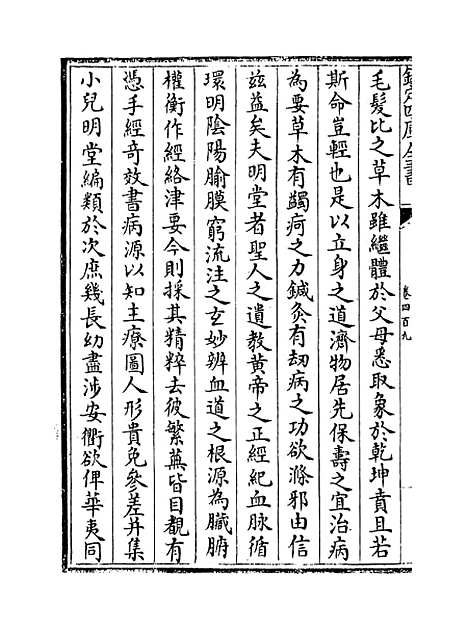 欽定四庫全書
卷四百九
毛髮比之草木雖繼體於父母悉取象於乾坤賁且若
斯命豈輕也是以立身之道濟物居先保壽之宜治病
為要草木有蠲疴之力鍼灸有刼病之功欲滌邪由信
兹益矣夫明堂者聖人之遺教黄帝之正經紀血脉循
環明陰陽腧膜窮流注之玄妙辨血道之根源為臟腑
權衡作經絡津要今則採其精粹去彼繁蕪皆目覩有
憑手經奇效書病源以知主療圖人形貴免參差并集
小兒明堂編類於次庶幾長幼盡涉安衢欲俾華夷同